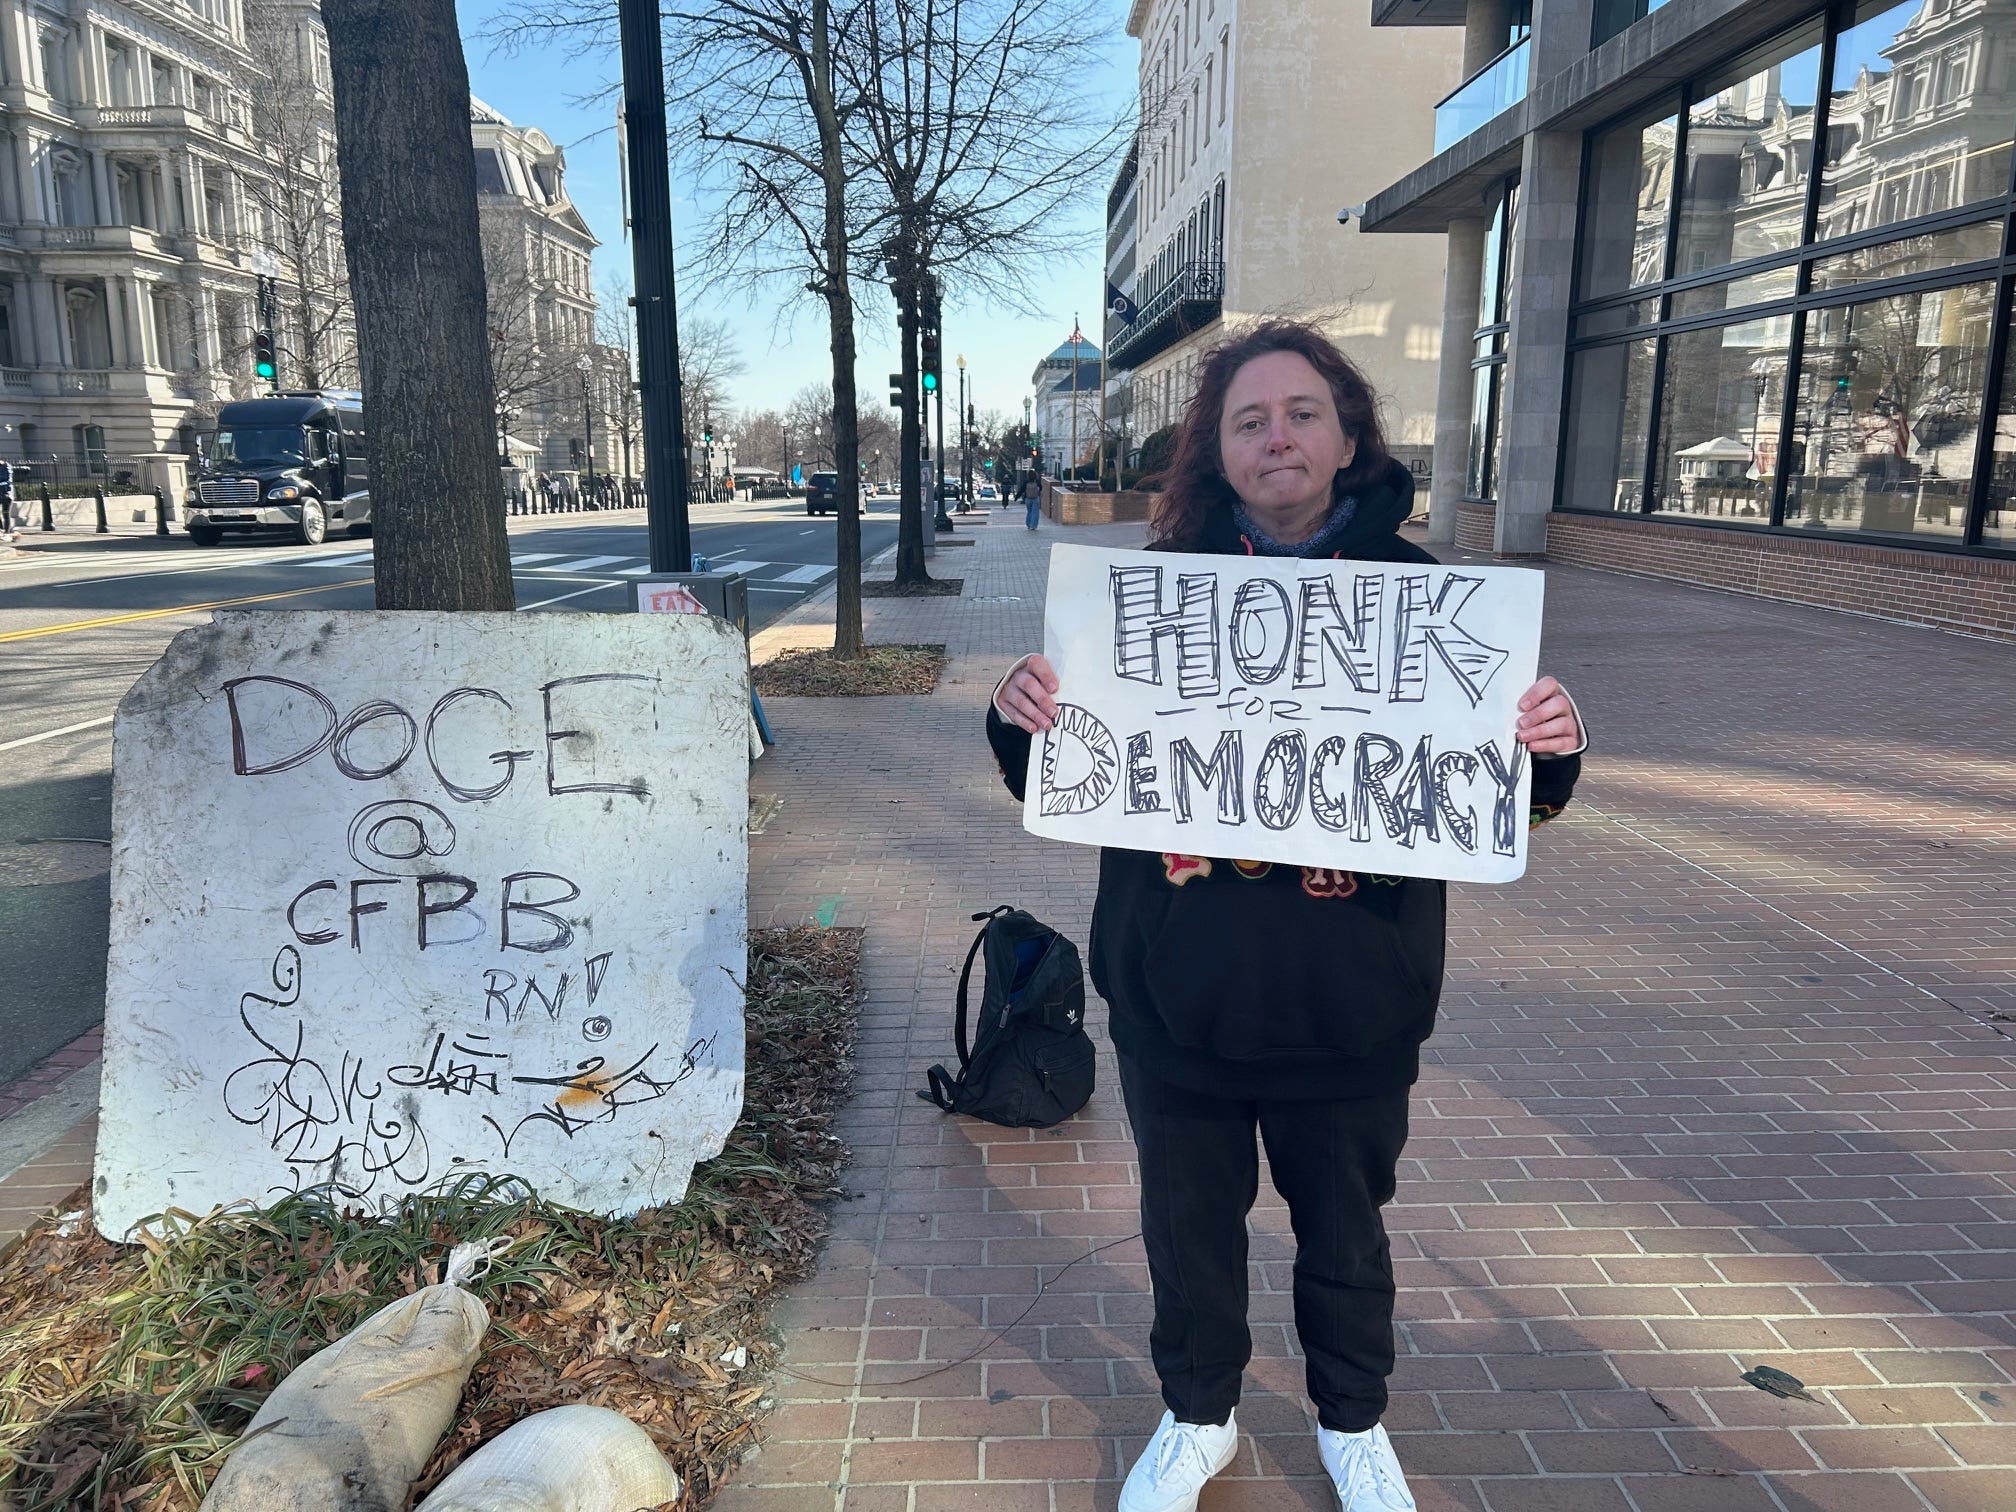 EAT
DOGE
@
CFPB
RN!
HONK
- for -
DEMOCRACY